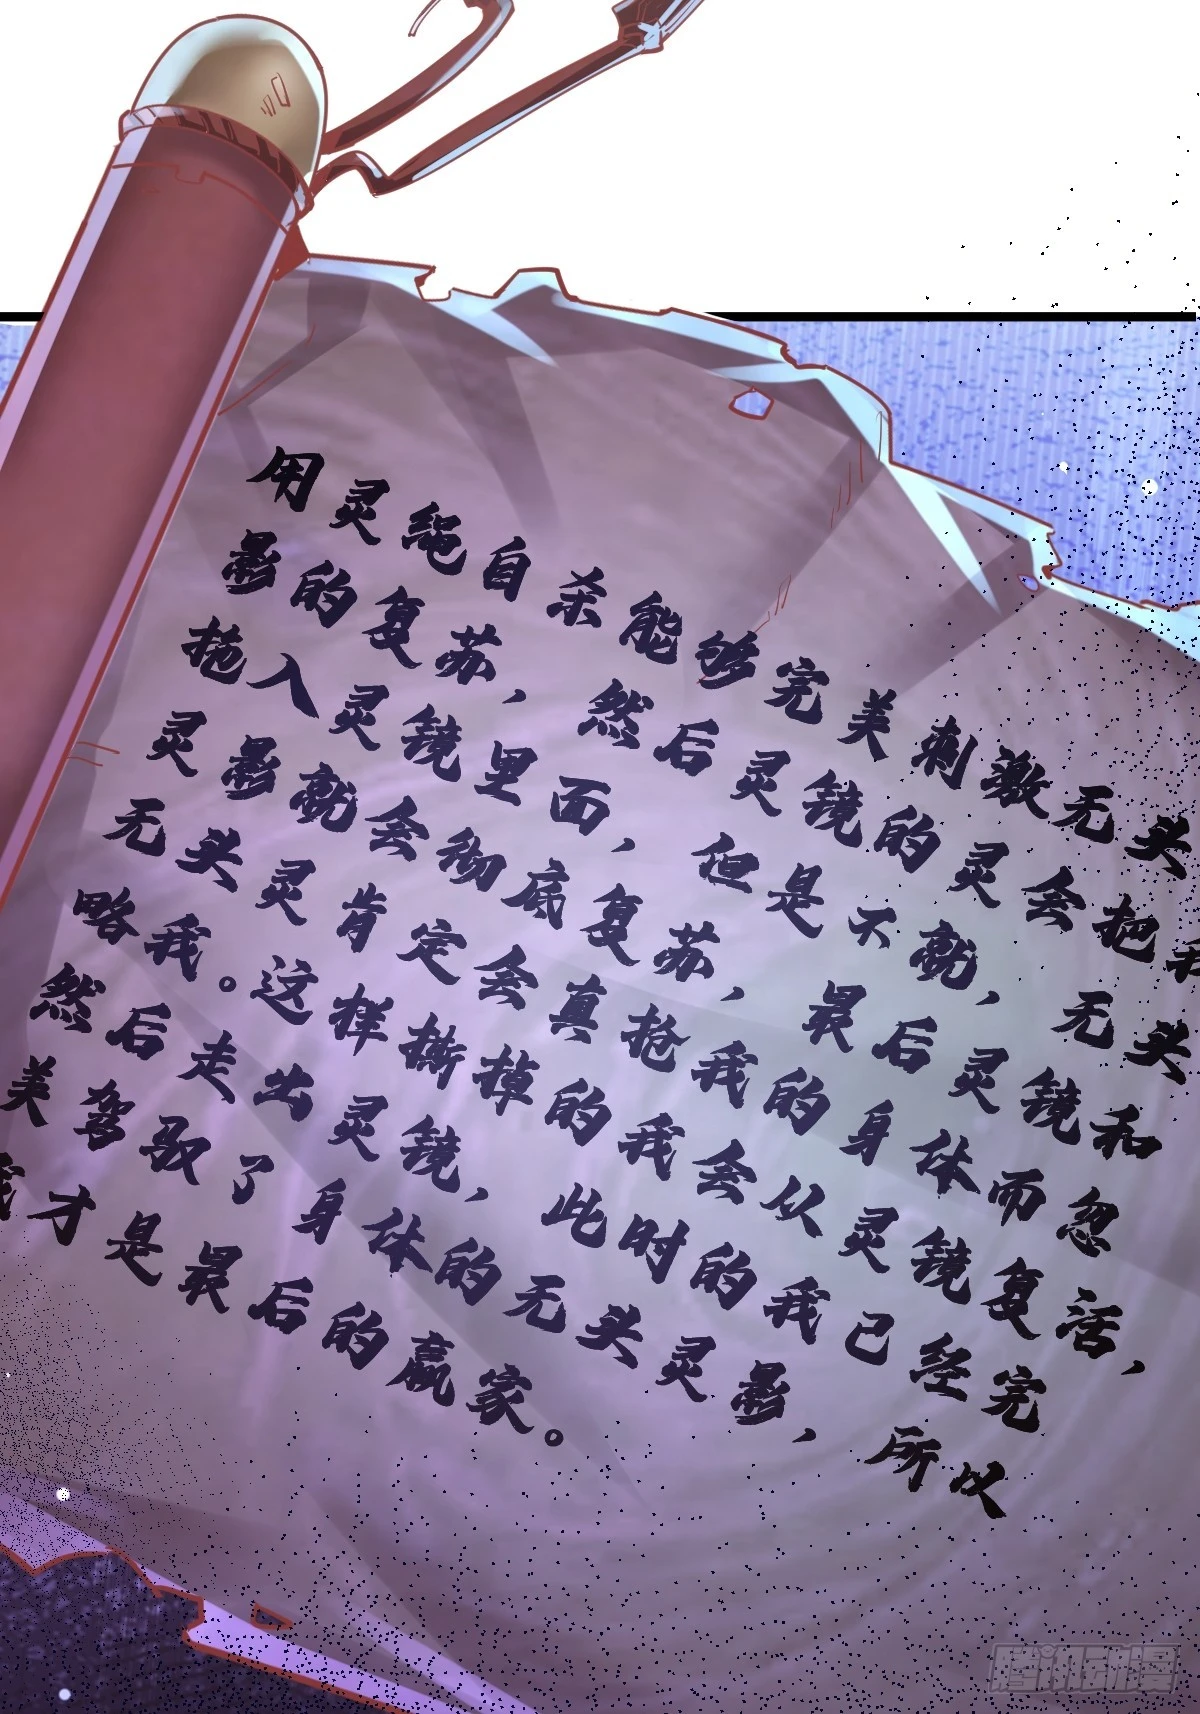 用灵绳自杀能够完美刺激无头
影的复苏，然后灵镜的灵会把我
拖入灵镜里面，但是不就，无头
灵影就会彻底复苏，最后灵镜和
无头灵肯定会真抢我的身体而忽
略我。这样撕掉的我会从灵镜复活，
然后走出灵镜，此时的我已经完
美驾驭了身体的无头灵影，所以
我才是最后的赢家。
腾讯动漫